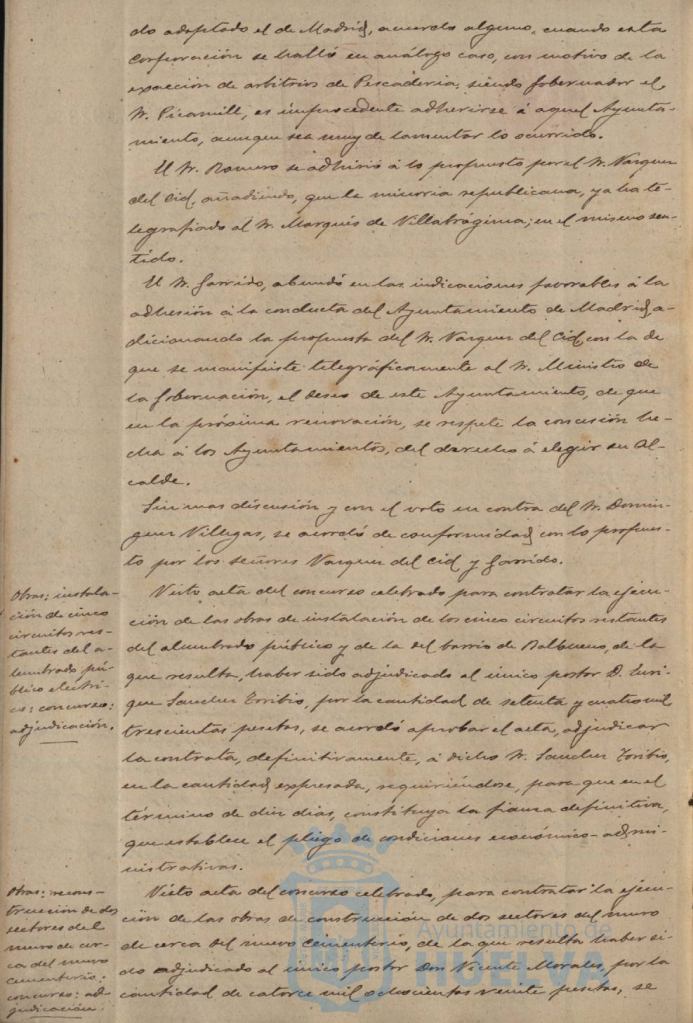 do adoptado el de Madrid, acuerdo alguno, cuando esta
Corporación se halló en análogo caso, con motivo de la
exacción de arbitrios de Pescadería, siendo Gobernador el
Sr. Picamill, es improcedente adherirse á aquel Ayunta-
miento, aunque sea muy de lamentar lo ocurrido.
El Sr. Romero se adhirió á lo propuesto por el Sr. Vazquez
del Cid, añadiendo, que la minoria republicana, ya ha te-
legrafiado al Sr. Marqués de Villabrágima, en el mismo sen-
tido.
El Sr. Garrido, abundó en las indicaciones favorables á la
adhesión á la conducta del Ayuntamiento de Madrid, a-
dicionando la propuesta del Sr. Vazquez del Cid, con la de
que se manifieste telegráficamente al Sr. Ministro de
la Gobernación, el deseo de este Ayuntamiento, de que
en la próxima renovación, se respete la concesión he-
cha á los Ayuntamientos, del derecho á elegir su Al-
calde.
Sin mas discusión y con el voto en contra del Sr. Domin-
guez Villegas, se acordó de conformidad con lo propues-
to por los señores Vazquez del Cid y Garrido.
Obras; instala-
ción de cinco
circuitos res-
tantes del a-
lumbrado pú-
blico eléctri-
co: concurso:
adjudicación.
Visto acta del concurso celebrado para contratar la ejecu-
ción de las obras de instalación de los cinco circuitos restantes
del alumbrado público y de la del barrio de Balbueno, de la
que resulta, haber sido adjudicado al único postor D. Enri-
que Sanchez Toribio, por la cantidad de setenta y cuatro mil
trescientas pesetas, se acordó aprobar el acta, adjudicar
la contrata, definitivamente, á dicho Sr. Sanchez Toribio,
en la cantidad expresada, requiriéndose, para que en el
término de diez dias, constituya la fianza definitiva,
que establece el pliego de condiciones económico-admi-
nistrativas.
Obras: recons-
trucción de dos
sectores del
muro de cer-
ca del nuevo
cementerio:
concurso: ad-
judicación.
Visto acta del concurso celebrado, para contratar la ejecu-
ción de las obras de construcción de dos sectores del muro
de cerca del nuevo Cementerio, de la que resulta haber si-
do adjudicado al único postor Don Vicente Morales, por la
cantidad de catorce mil ochocientas veinte pesetas, se
Ayuntamiento de
HUELVA